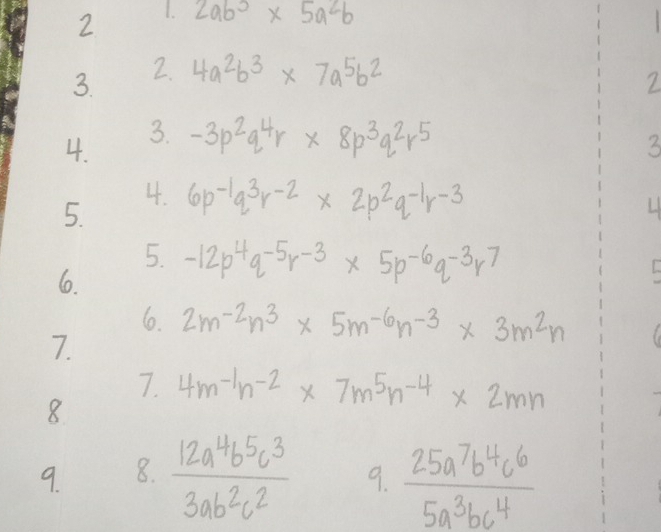 2 1. 2ab³ × 5a²b
3. 2. 4a²b³ × 7a⁵b²
4. 3. -3p²q⁴r × 8p³q²r⁵
5. 4. 6p⁻¹q³r⁻² × 2p²q⁻¹r⁻³
6. 5. -12p⁴q⁻⁵r⁻³ × 5p⁻⁶q⁻³r⁷
7. 6. 2m⁻²n³ × 5m⁻⁶n⁻³ × 3m²n
8 7. 4m⁻¹n⁻² × 7m⁵n⁻⁴ × 2mn
9. 8. 12a⁴b⁵c³ / 3ab²c² 9. 25a⁷b⁴c⁶ / 5a³bc⁴
2
3
4
5